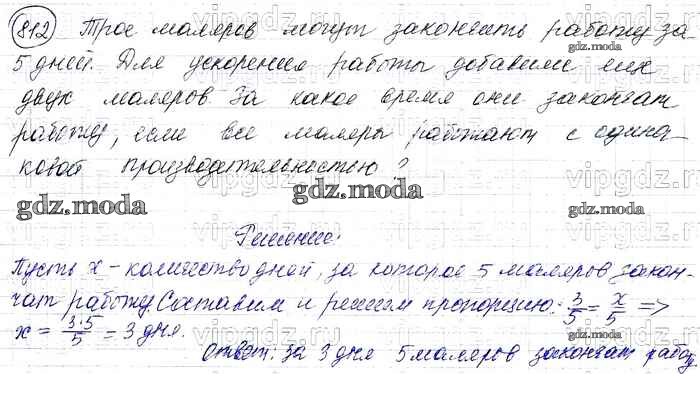 812 Трое маляров могут закончить работу за
5 дней. Для ускорения работы добавили еще
двух маляров. За какое время они закончат
работу, если все маляры работают с одина-
ковой производительностью?
Решение:
Пусть x - количество дней, за которое 5 маляров закон-
чат работу. Составим и решим пропорцию: 3/5 = x/5 =>
x = 3·5/5 = 3 дня.
Ответ: за 3 дня 5 маляров закончат работу
gdz.moda
gdz.moda
gdz.moda
gdz.moda
gdz.moda
vipgdz.ru